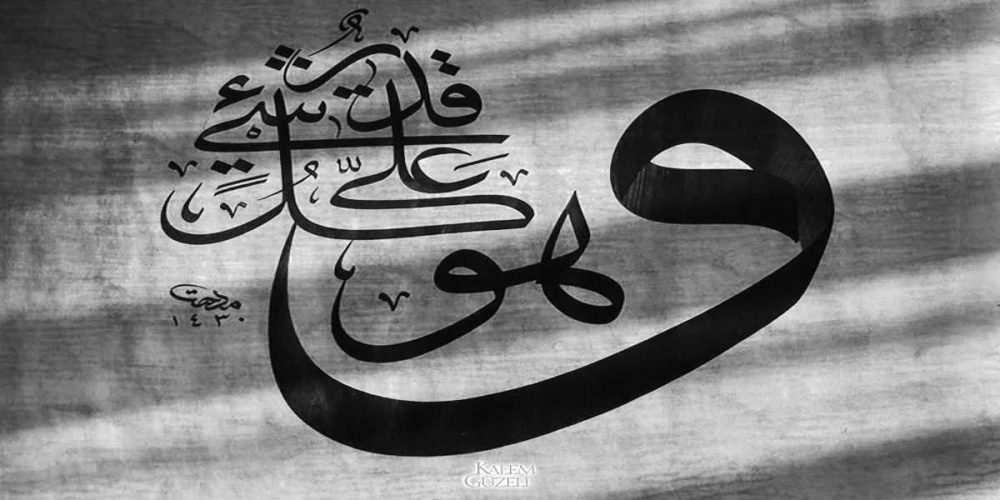 وهو على كل شيء قدير
مدحت
١٤٣٠
KALEM
GÜZELİ